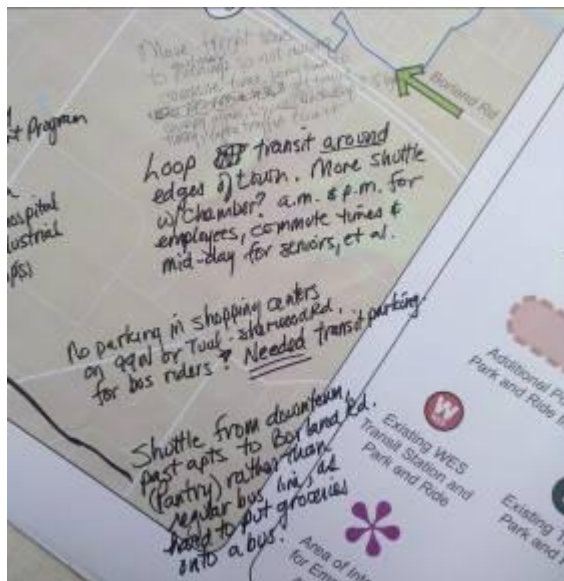 Borland Rd
t Program
ospital
ustrial
Loop transit around
edges of town. More shuttle
w/Chamber? a.m. & p.m. for
employees, commute times &
mid-day for seniors, et al.
No parking in shopping centers
on 99W or Tual-Sherwood Rd.
for bus riders? Needed transit parking.
Shuttle from downtown,
past apts to Borland Rd.
(Pantry) rather than
regular bus line, as
hard to put groceries
onto a bus.
Additional
Park and Ride
W
Existing WES
Transit Station and
Park and Ride
Existing
Park and
Area of
for